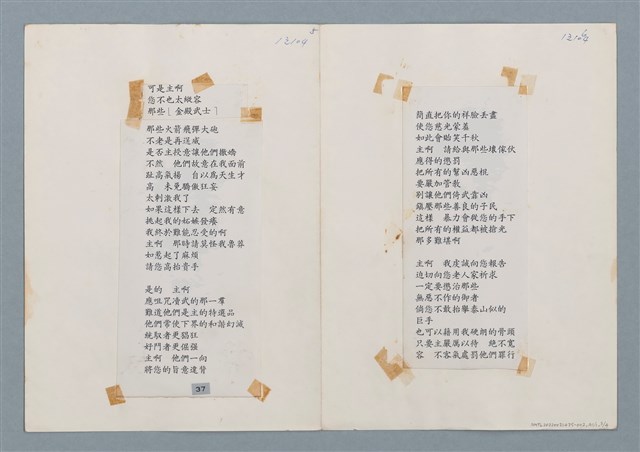 可是主啊
您不也太縱容
那些〔金殿武士〕
那些火箭飛彈大砲
不老是再逞威
是否主授意讓他們撒嬌
不然　他們故意在我面前
趾高氣揚　自以為天生才
高　未免驕傲狂妄
太刺激我了
如果這樣下去　定然有意
挑起我的妬嫉發癢
我終於難能忍受的啊
主啊　那時請莫怪我魯莽
如惹起了麻煩
請您高抬貴手
是的　主啊
應咀咒凟武的那一羣
難道他們是主的特選品
他們常使下界的和諧幻滅
統馭者更猖狂
好鬥者更倔強
主啊　他們一向
將您的旨意違背
37
簡直把你的祥臉丟盡
使您慈光蒙羞
如此會貽笑千秋
主啊　請給與那些壞傢伙
應得的懲罰
把所有的幫凶惡棍
要嚴加管教
別讓他們恃武靠凶
殲壓那些善良的子民
這樣　暴力會從您的手下
把所有的權益都被搶光
那多難堪啊
主啊　我虔誠向您報告
迫切向您老人家祈求
一定要懲治那些
無惡不作的御者
倘您不敢抬舉泰山似的
巨手
也可以藉用我硬朗的骨頭
只要主嚴厲以待　絕不寬
容　不客氣處罰他們罪行